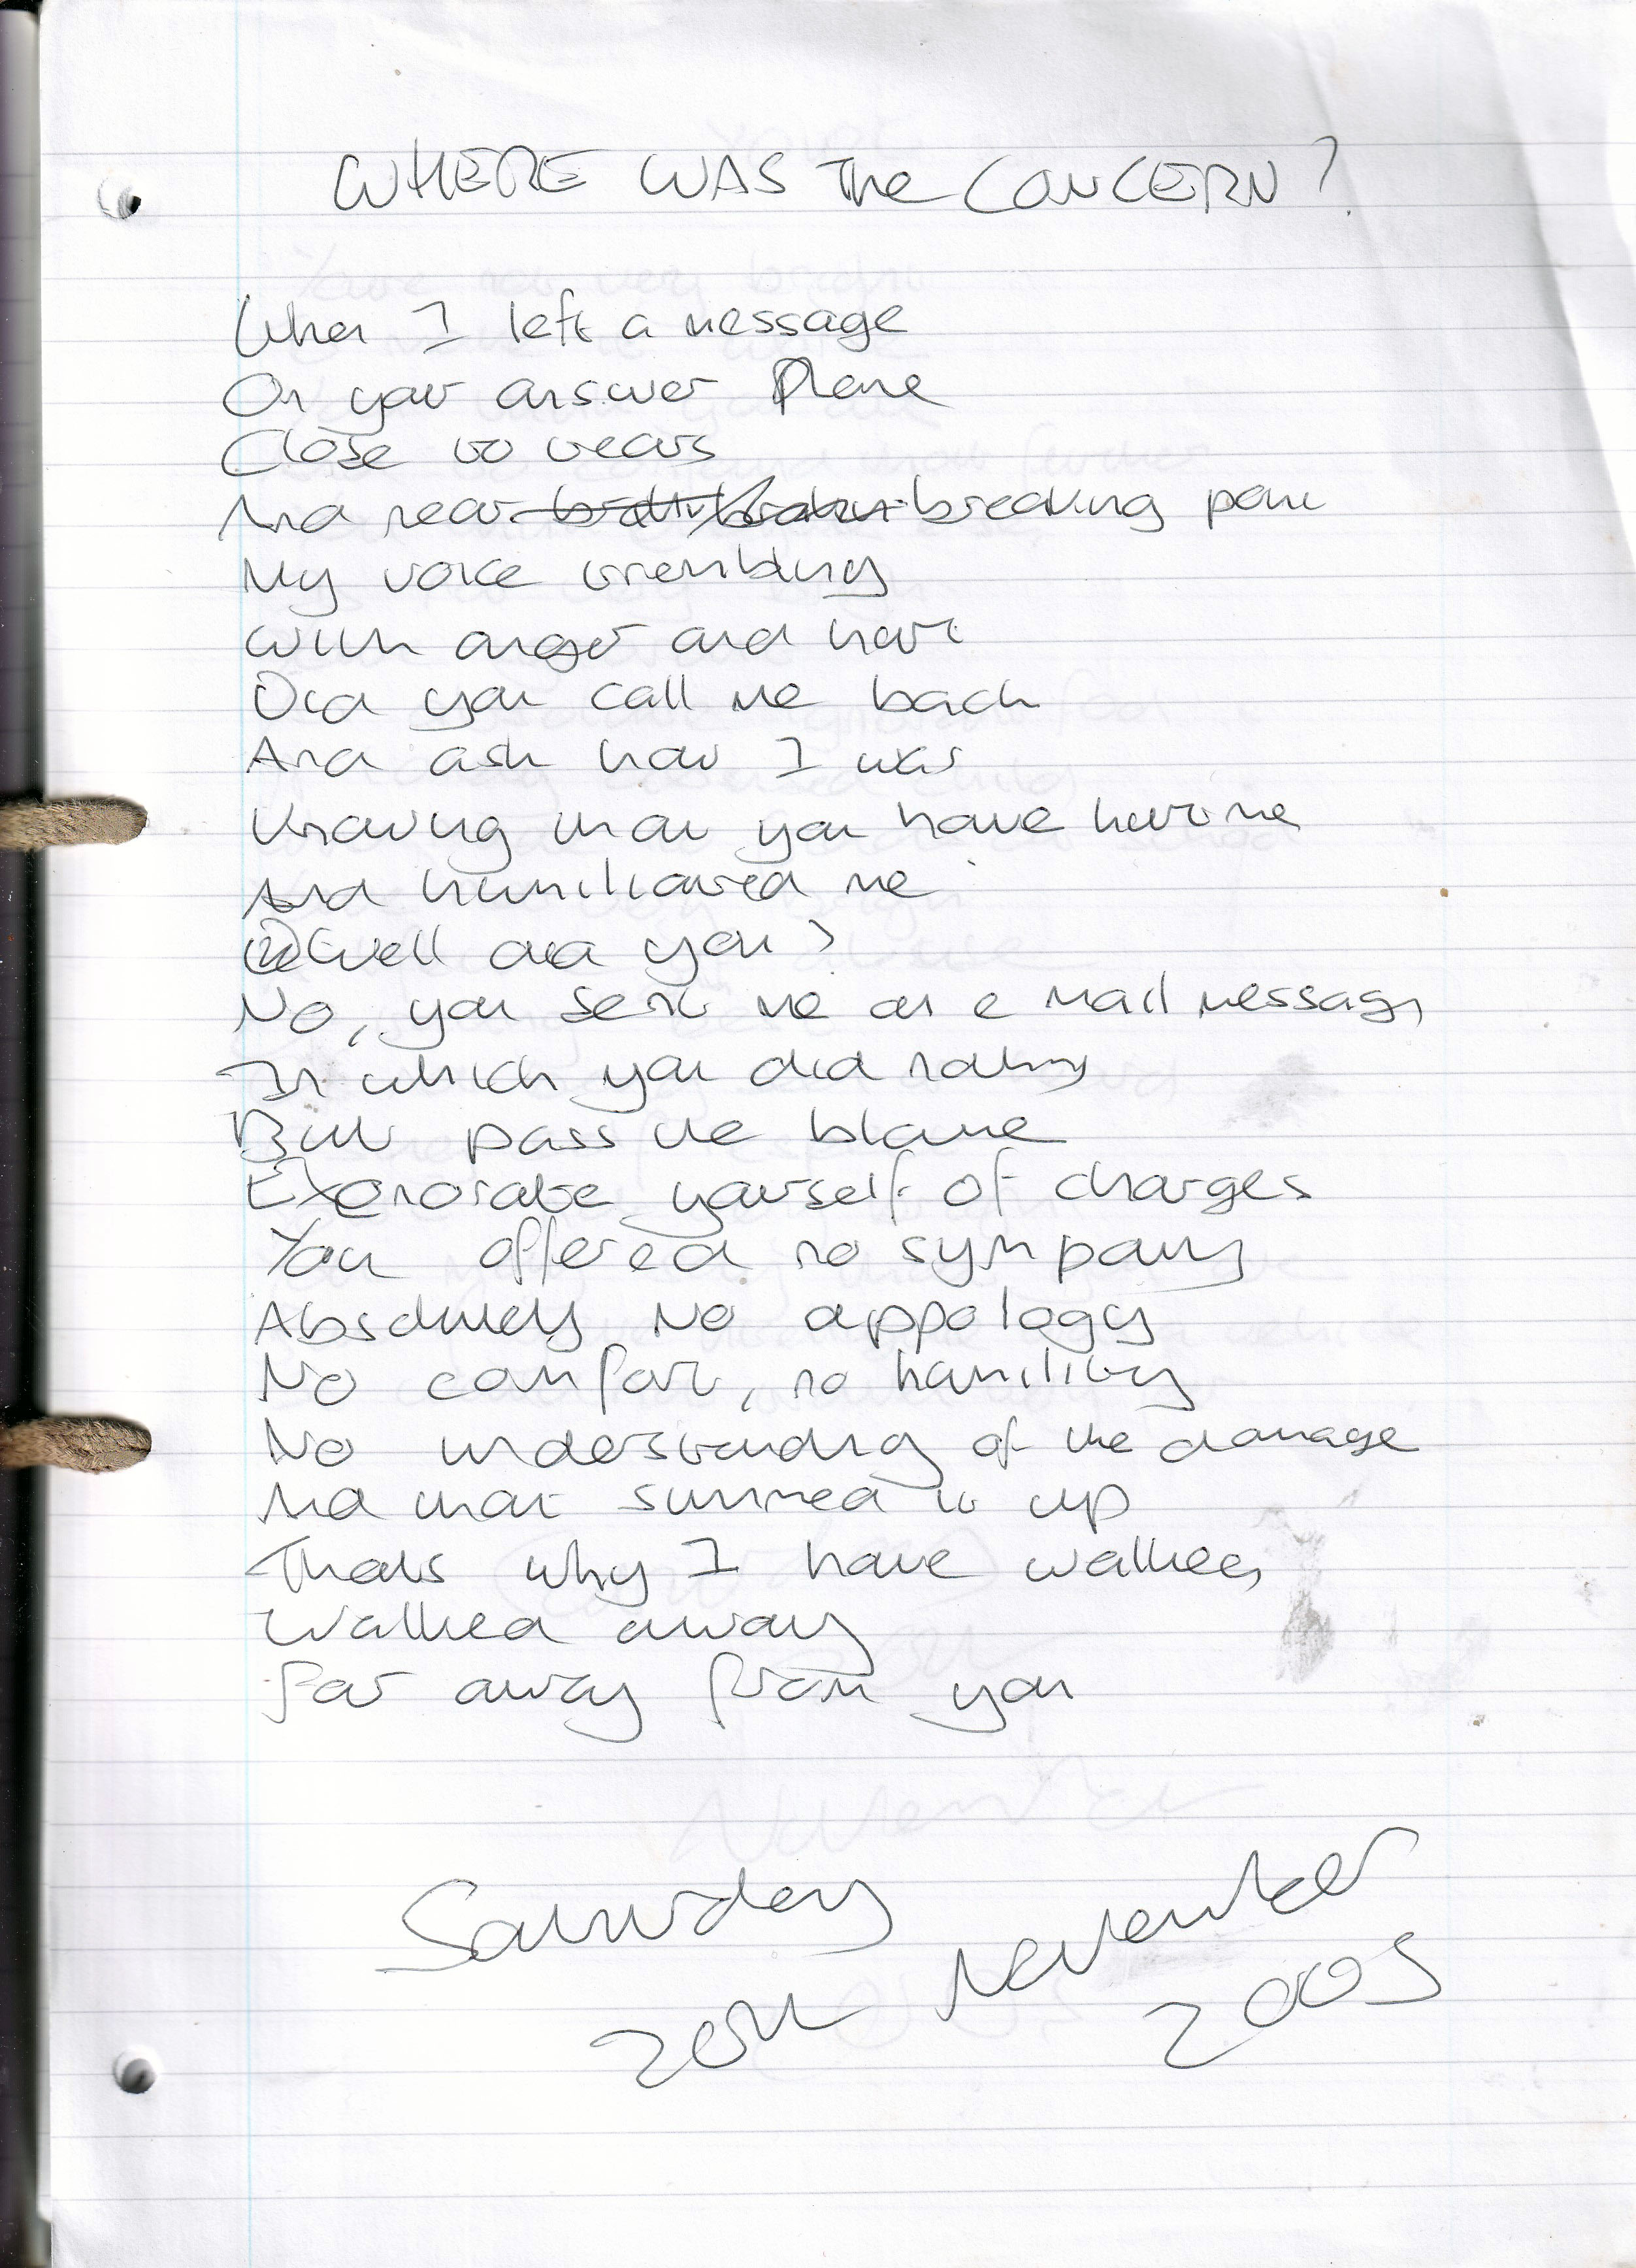 WHERE WAS The CONCERN?
When I left a message
On your answer Phone
Close to tears
And near breaking point
My voice trembling
With anger and hurt
Did you call me back
And ask how I was
Knowing that you have hurt me
And humiliated me
Well did you?
No, you sent me an e mail message
In which you did nothing
But pass the blame
Exonorate yourself of charges
You offered no sympathy
Absolutely No appology
No comfort, no humility
No understanding of the damage
And that summed it up
Thats why I have walked,
Walked away
Far away from you
Saturday
20th November
2005